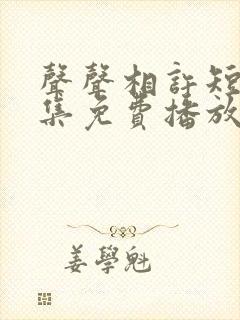 聲聲相許短
集免費播放
姜學魁